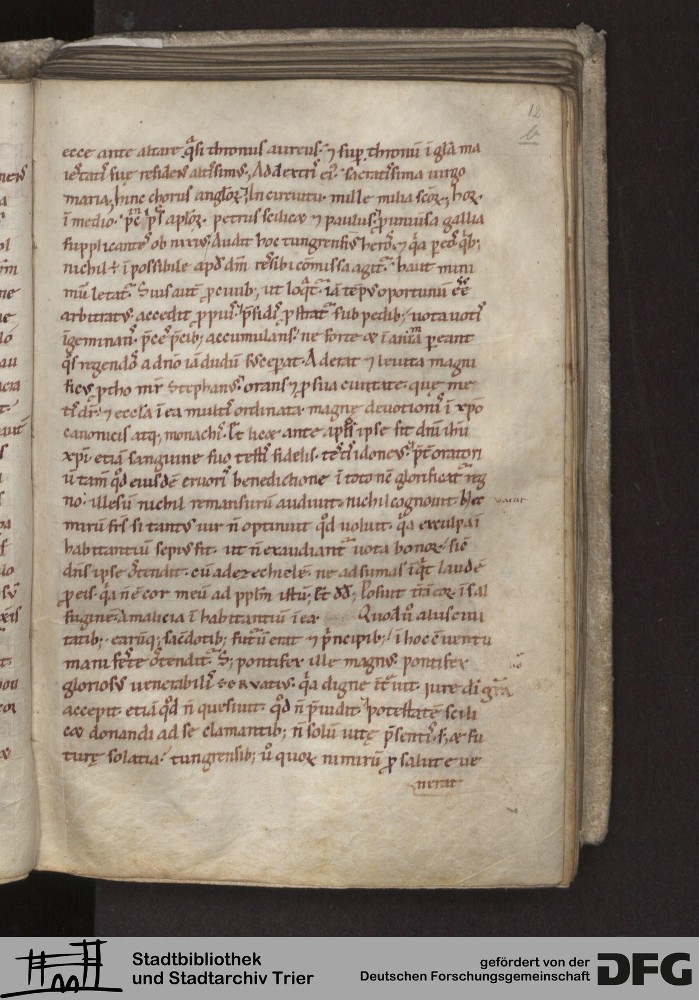 12
ecce ante altare q̄si thronus aureus. ⁊ sup thronū ī gl̄a ma
iestatis suę residens altissimus. Ad dextrā ei sacratissima uirgo
maria, hinc chorus angłoꝝ. In circuitu mille milia sc̄oꝝ, hoꝝ
ī medio. aplōꝝ. petrus scilicet ⁊ paulus. puniuisa gallia
supplicantes ob nixius. Audit hoc tungrensis heros ⁊ q̄a p eos q̄b;
nichil ī possibile apd dm̄ res sibi cōmissa agit. haut mini
mū letat. Suis autē p ciuib; ut loq̄t. iā tēpus oportunū eē
arbitratus. accedit ppius. p̄sidis pstrat sub pedib; uota uotis
īgeminans. p̄ces p̄cib; accumulans. ne forte ⁊ ī aīa peant
q̄s regendos a dn̄o iādudū susceperat. Aderat ⁊ leuita magni
ficus ptho mr̄ Stephanus. orans ⁊ p sua ciuitate. quę me
tis dr̄. ⁊ eccl̄a ī ea multis ordinata magnę deuotionis ī xp̄o
canonicis atq; monachis. licet ante ipse sit dn̄i ih̄u
xp̄i etiā sanguine suo testis fidelis. testis idoneus. oratori
u tam q̄d eiusdē cruoris benedictione ī toto nē glorificat reg
no. illesū nichil remansurū audiuit. nichil cognouit. Nec
mirū frs̄ si tantus uir n̄ optinuit q̄d uoluit. q̄a ex culpa ī
habitantiū sepius fit. ut n̄ exaudiant uota bonoꝝ. sic
dn̄s ipse ostendit. cū ad ezechielē. ne adsumas īq̄t laudē
p eis. q̄a n̄ ē cor meū ad pplm̄ istū. Et dd. Posuit trā eoꝝ ī sal
suginē. A malicia ī habitantiū ī ea. Quod ū aliis ciui
tatib; earūq; sacdotib; futūū erat ⁊ p̄ncipib; ī hoc ēuentu
manifeste ostendit. S; pontifex ille magnus pontifex
gloriosus uenerabilis SERVATIUS. q̄a digne uit. iure di gr̄a
accepit. etiā q̄d n̄ quesiuit. q̄d n̄ p̄uidit. potestatē scili
cet donandi ad se clamantib; n̄ solū uitę p̄sentis. s; ⁊ fu
turę solatia. tungrensib; ū̊ quoꝝ nimirū p salute ue
nerat
vacat
Stadtbibliothek
und Stadtarchiv Trier
gefördert von der
Deutschen Forschungsgemeinschaft
DFG